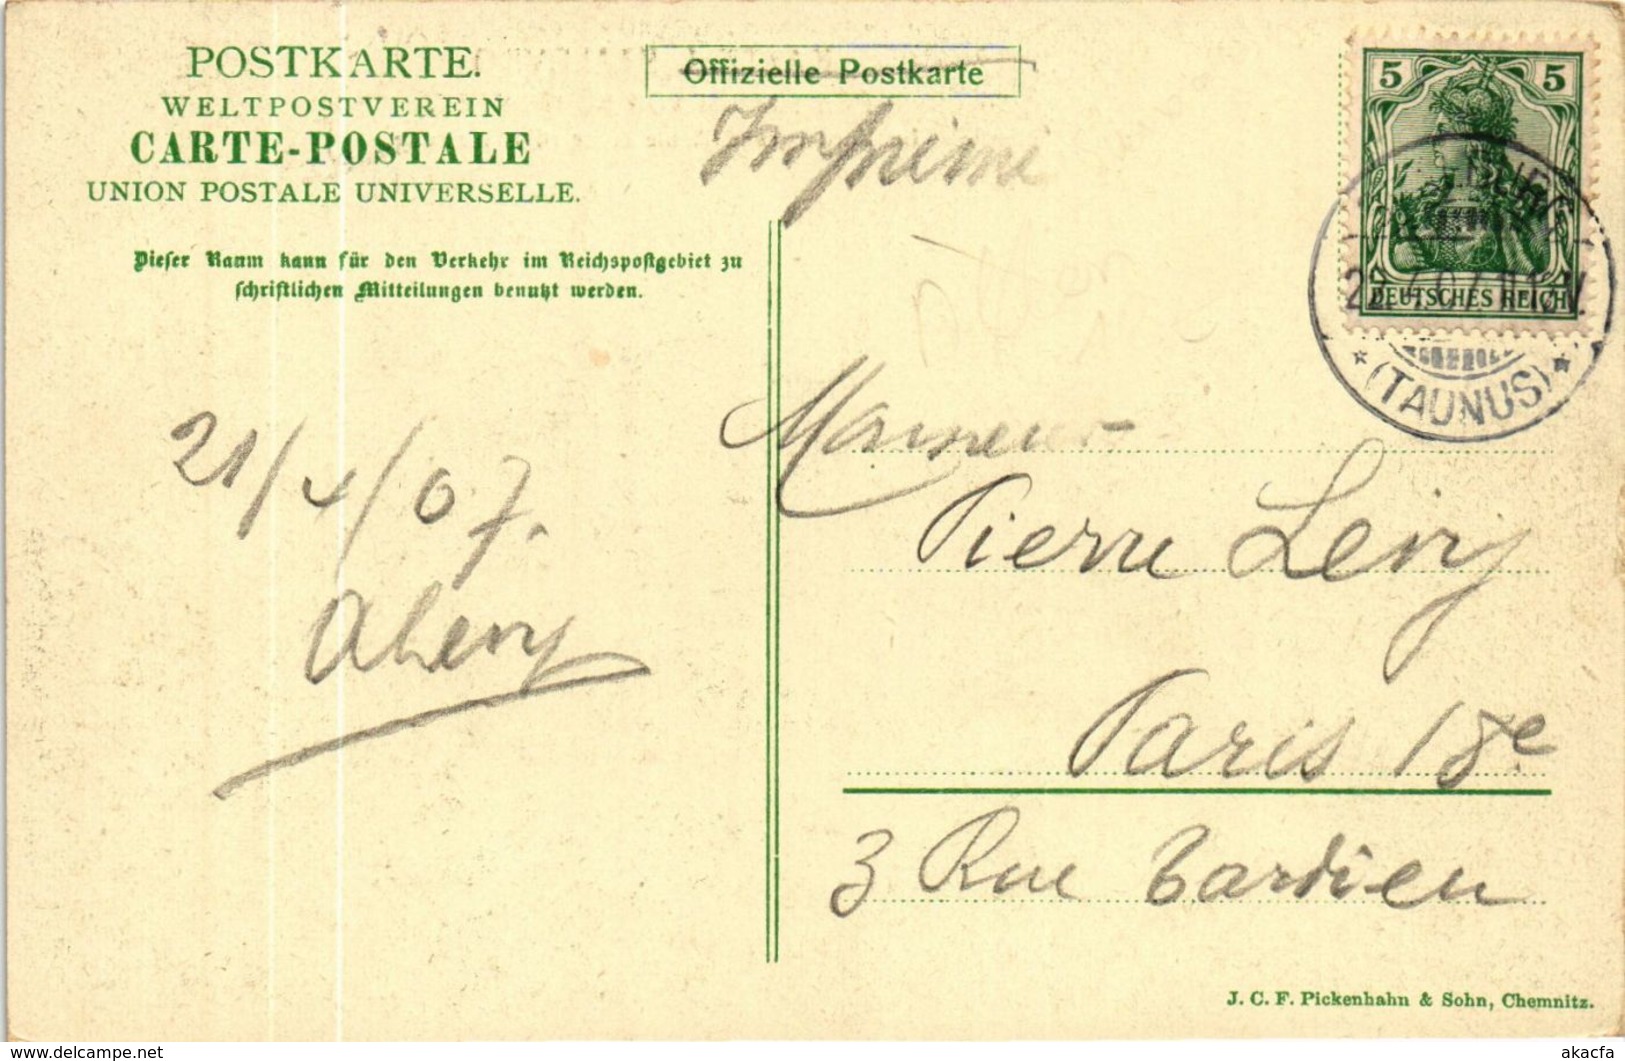 POSTKARTE.
WELTPOSTVEREIN
CARTE-POSTALE
UNION POSTALE UNIVERSELLE.
Dieser Raum kann für den Verkehr im Reichspostgebiet zu
schriftlichen Mitteilungen benutzt werden.
Offizielle Postkarte
Imprimé
5 5
DEUTSCHES REICH
(TAUNUS)
21/4/07.
ALevy
Monsieur
Pierre Levy
Paris 18e
3 Rue Tardieu
J. C. F. Pickenhahn & Sohn, Chemnitz.
akacfa